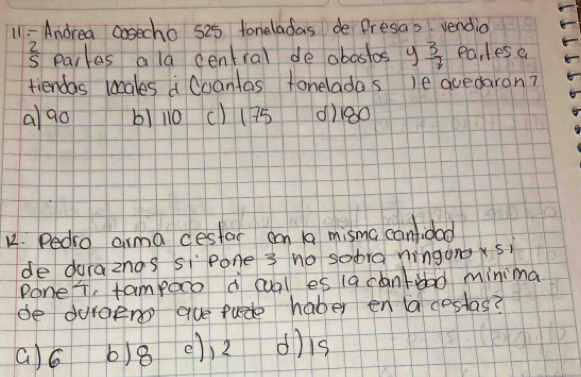 11= Andrea cosecho 525 toneladas de fresas. vendio
2/5 partes a la central de abastos y 3/7 partes a
tiendas locales ¿ Cuantas toneladas le quedaron?
a) 90 b) 110 c) 175 d) 180
12. Pedro arma cestar con la misma cantidad
de duraznos si pone 3 no sobra ninguno y si
pone 4, tampoco ¿ cual es la cantidad minima
de que puede haber en la cestas?
a) 6 b) 8 c) 12 d) 15